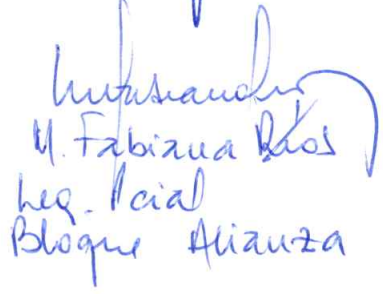 M. Fabiana Ríos
Leg. Pcial
Bloque Alianza